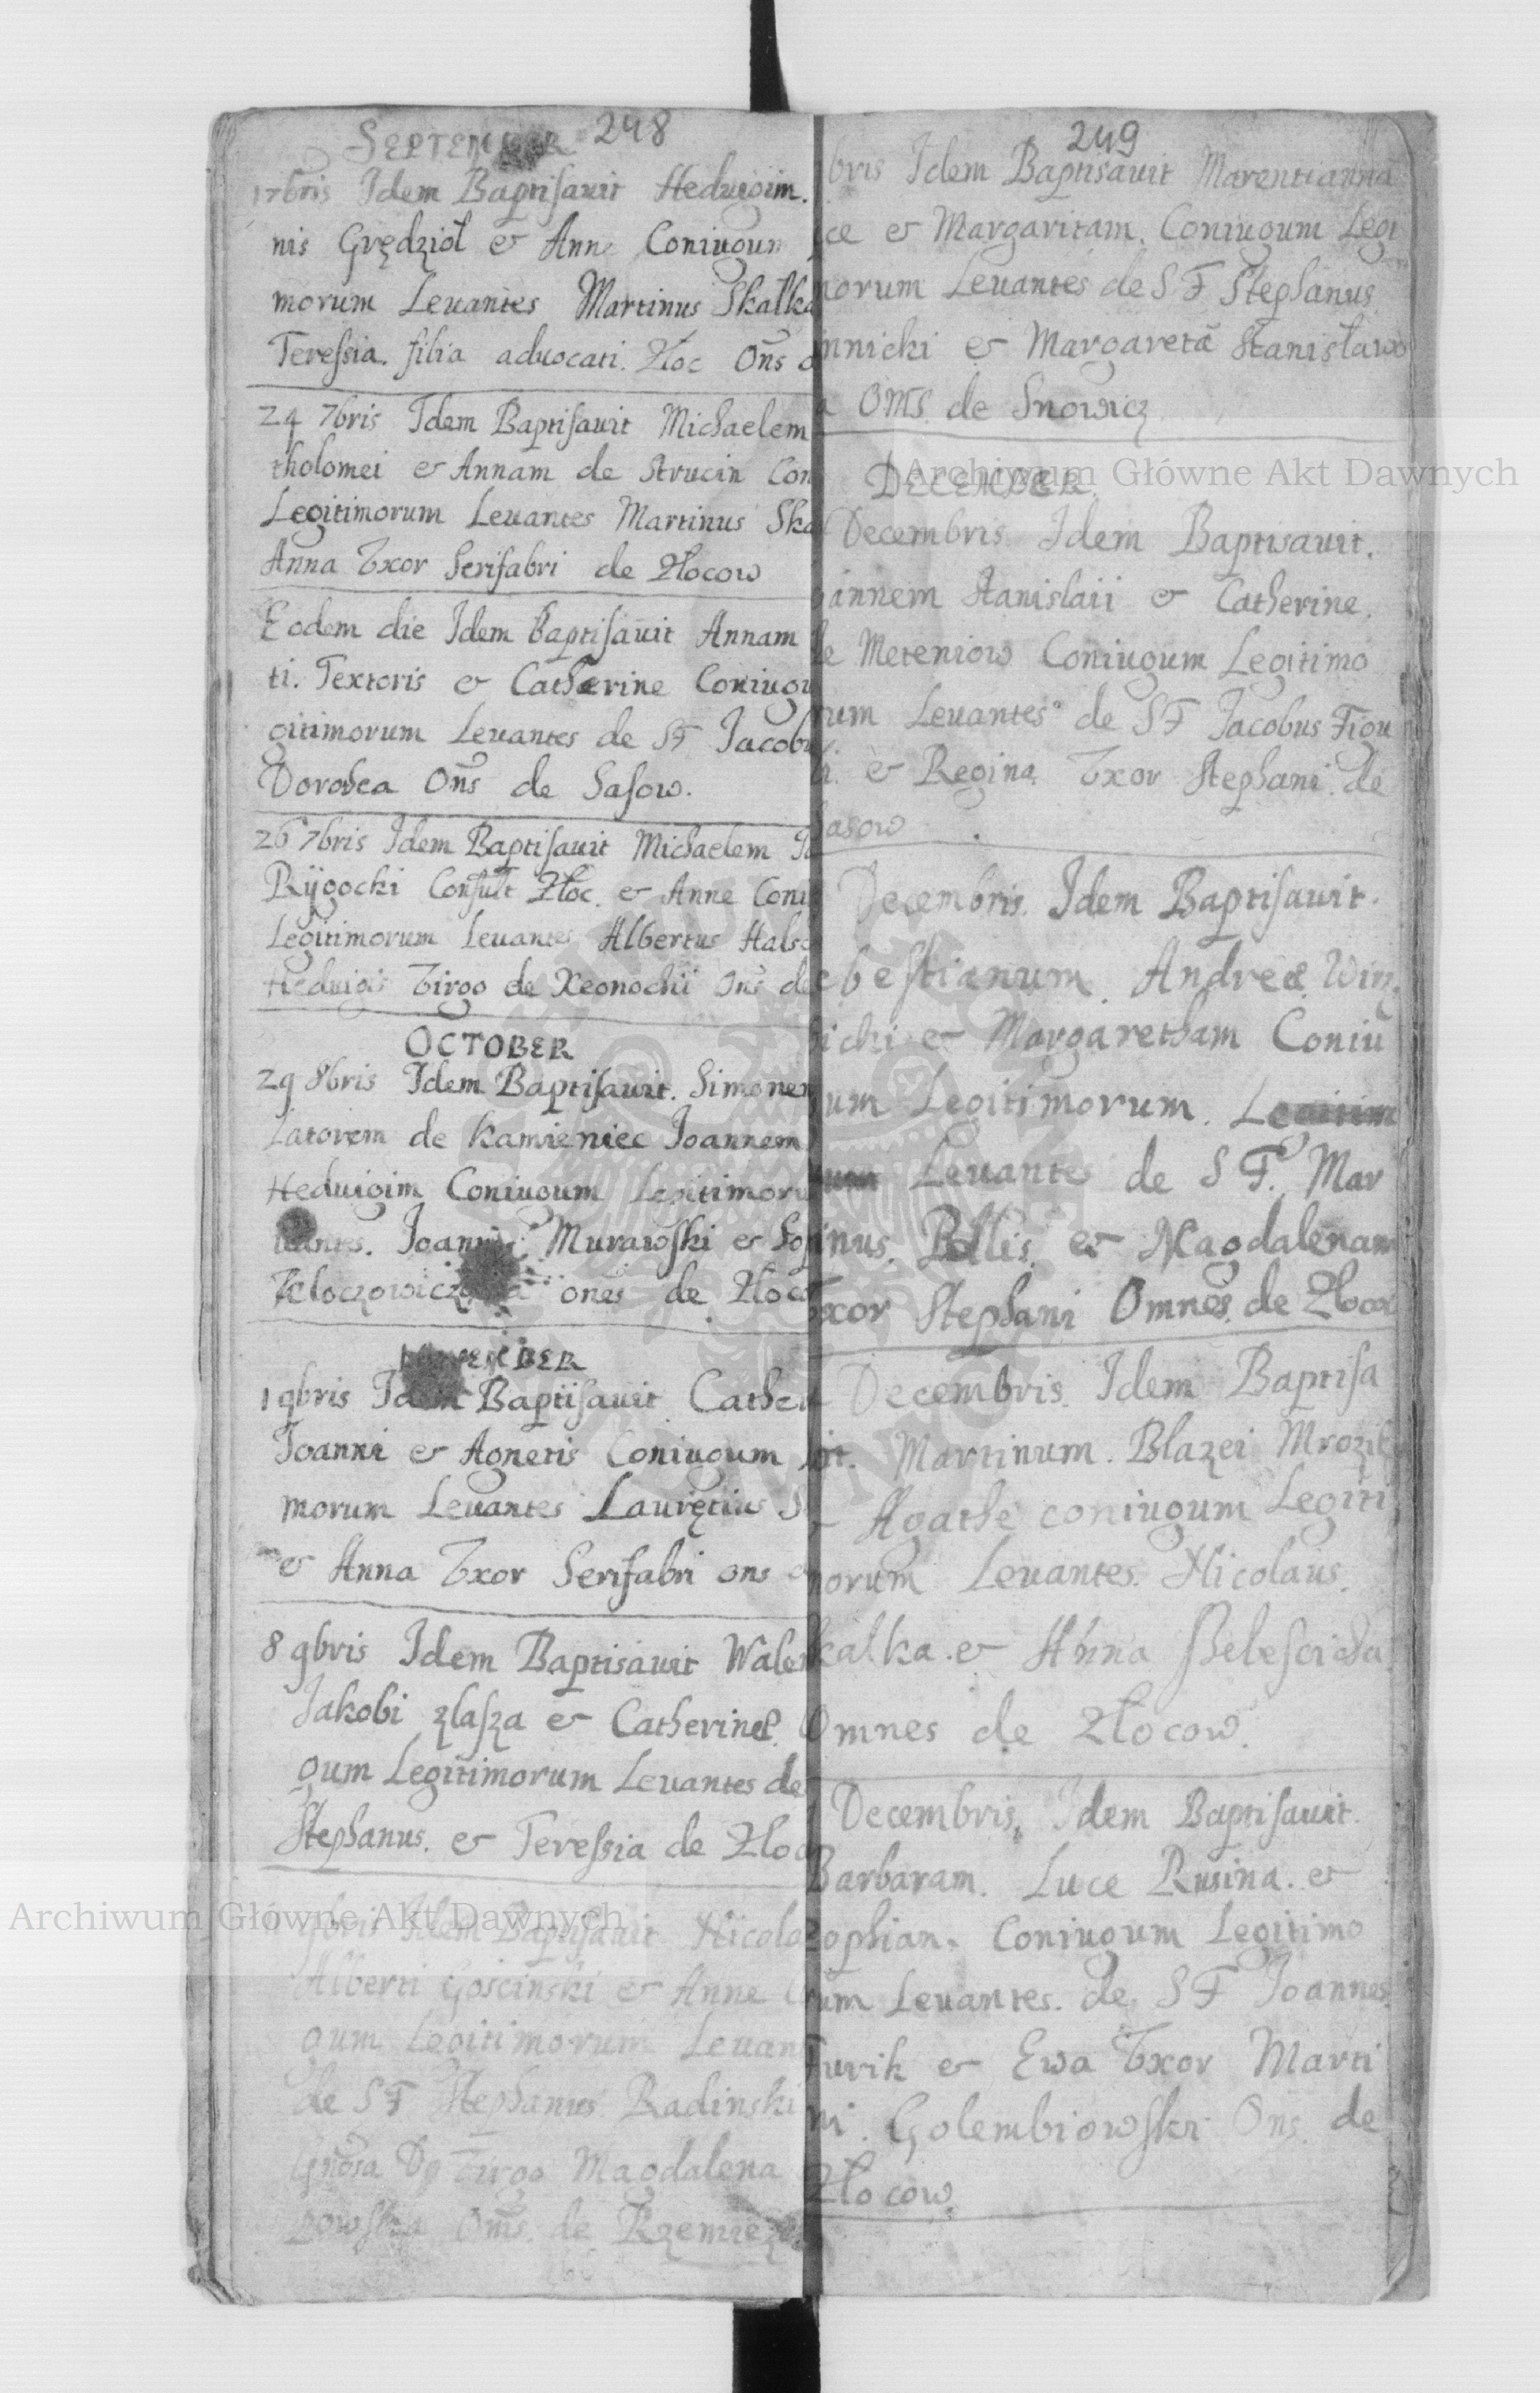 SEPTEMBER 248
17bris Idem Baptisauit Heduigim.
nis Grędziot & Anne Coniugum
morum Leuantes Martinus Skalka
Teressia. filia aduocati. Zloc Oñs
24 7bris Idem Baptisauit Michaelem
tholomei & Annam de Strucin Con
Legitimorum Leuantes Martinus Ska
Anna Vxor Serifabri de Zlocow
Eodem die Idem Baptisauit Annam
ti. Textoris & Catherine Coniugu
gitimorum Leuantes de SF Jacob
Dorothea Oñs de Sasow.
26 7bris Idem Baptisauit Michaelem
Rÿgocki Consult Zloc. & Anne Coni
Legitimorum Leuantes Albertus
Heduigis Virgo de Oñs de
OCTOBER
29 8bris Idem Baptisauit. Simonem
de Kamieniec Joannem
Heduigim Coniugum Legitimoru
Joannes Murawski & So
ones de Zloco
NOVEMBER
1 9bris Idem Baptisauit Cather
Joanni & Agnetis Coniugum
morum Leuantes Lauręties S
& Anna Vxor Serifabri ons
8 9bris Idem Baptisauit Wale
Jakobi zlasza & Catherine.
gum Legitimorum Leuantes de
Stephanus. & Teressia de Zloc
9bris Idem Baptisauit Nicola
Alberti Goscinski & Anne
gum Legitimorum Leuan
de SF Stephanus Radinski
Virgo Magdalena
Oms. de
249
bris Idem Baptisauit Marentianna
ce & Margaritam. Coniugum Legi
morum Leuantes de SF Stephanus
nnicki & Margaretã Stanisławo
a OMS de Snowicz
DECEMBER.
Decembris. Idem Baptisauit.
annem Stanislaii & Catherine.
de Meteniow Coniugum Legitimo
rum Leuantes de SF Jacobus Figu
& Regina Vxor Stephani. de
Sasow
Decembris. Idem Baptisauit.
ebestianum. Andreæ Win
icki & Margaretham Coniu
um Legitimorum.
Leuantes de SF. Mar
tinus. Pollis. & Magdalenam
Vxor Stephani Omnes de Zlocow
Decembris. Idem Baptisa
uit. Martinum. Blazei Mrozik
& Agathe coniugum Legiti
morum Leuantes. Nicolaus.
Skalka. & Anna
Omnes de Zlocow.
Decembris. Idem Baptisauit.
Barbaram. Luce Rusina. &
Zophian. Coniugum Legitimo
rum Leuantes. de SF Joannes
Furik & Ewa Vxor Marti
ni. Golembiowski Ons. de
Zlocow.
Archiwum Główne Akt Dawnych
Archiwum Główne Akt Dawnych